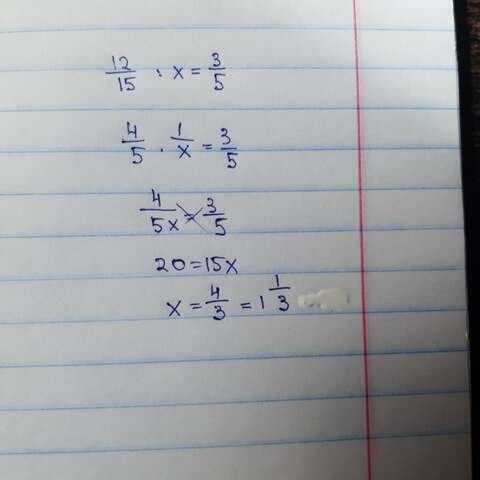 12/15 : x = 3/5
4/5 · 1/x = 3/5
4/5x = 3/5
20 = 15x
x = 4/3 = 1 1/3